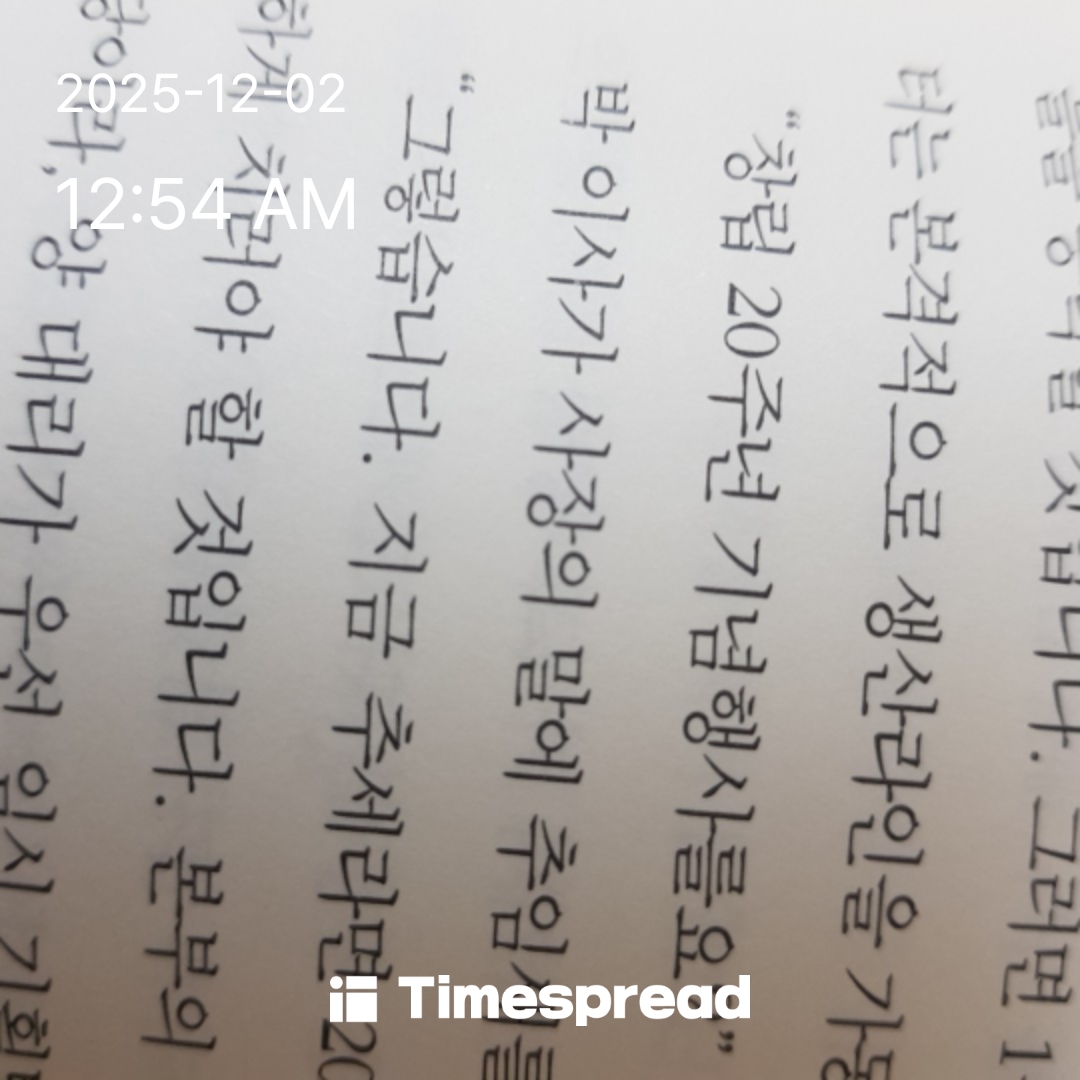 2025-12-02
12:54 AM
것입니다. 그러면 1
터는 본격적으로 생산라인을
"창립 20주년 기념행사를요?"
박 이사가 사장의 말에 추임새를
"그렇습니다. 지금 추세라면 20
하게 치러야 할 것입니다. 본부의
양 대리가 우선 임시
Timespread